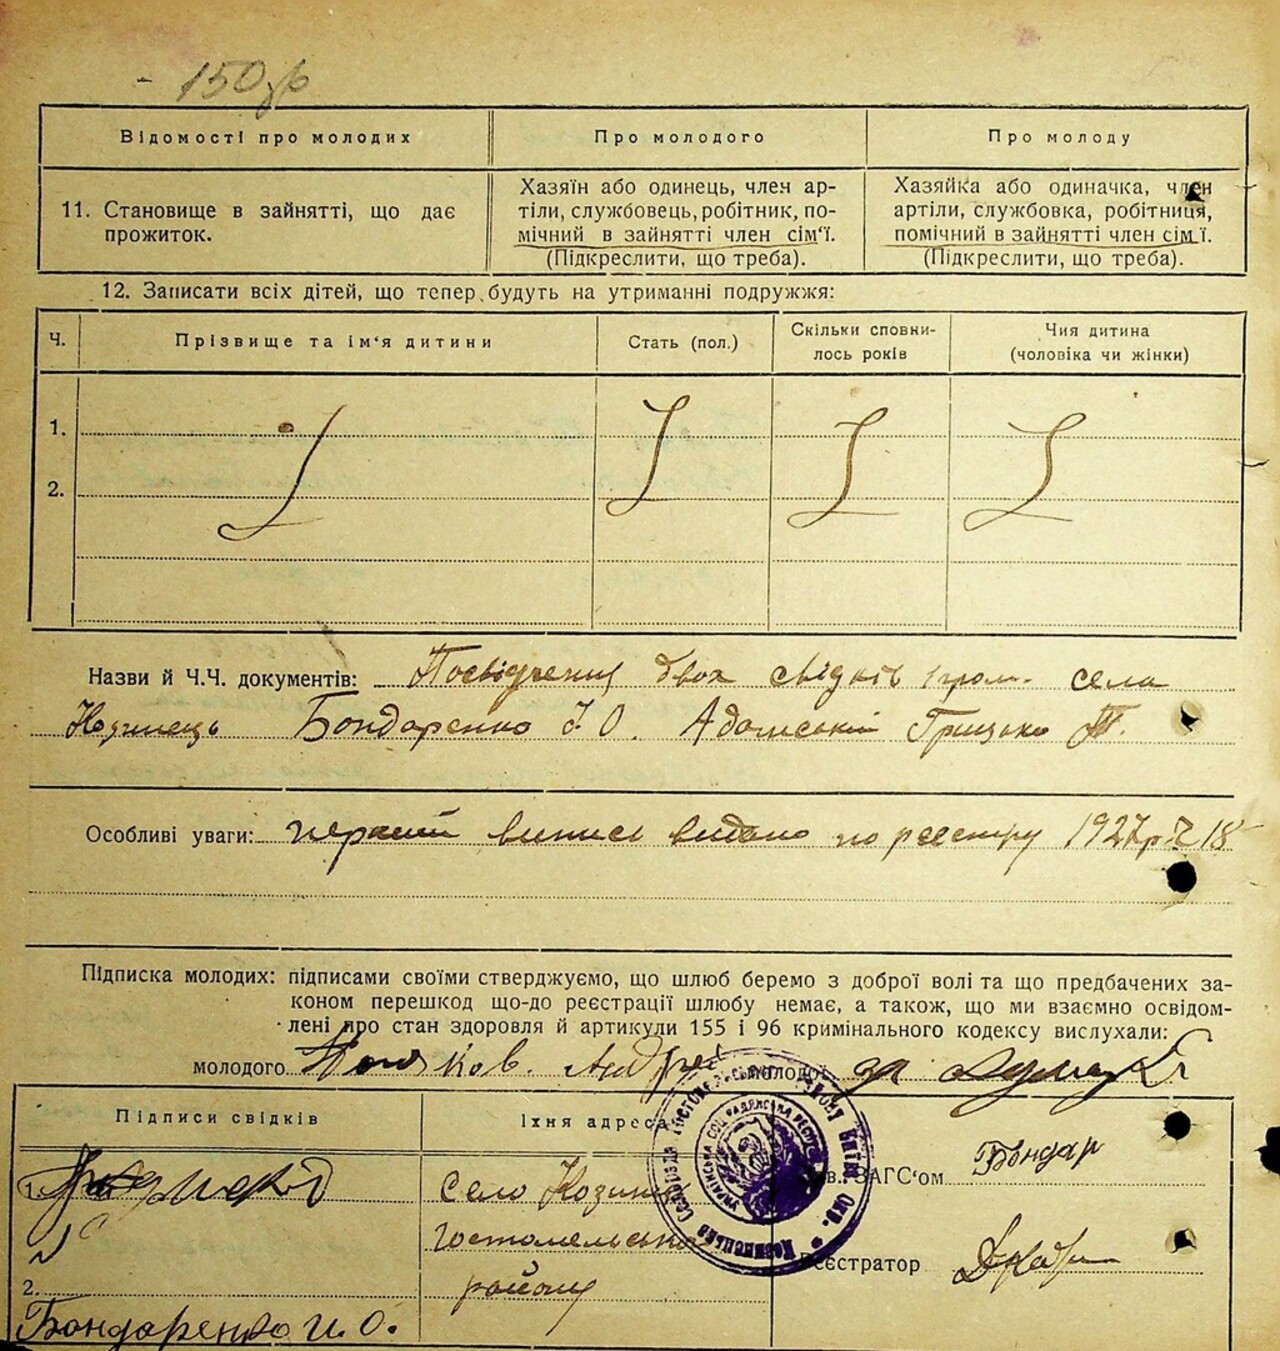 - 150
Відомості про молодих
Про молодого
Про молоду
11. Становище в зайнятті, що дає
прожиток.
Хазяїн або одинець, член ар-
тіли, службовець, робітник, по-
мічний в зайнятті член сім'ї.
(Підкреслити, що треба).
Хазяйка або одиначка, член
артіли, службовка, робітниця,
помічний в зайнятті член сім ї.
(Підкреслити, що треба).
12. Записати всіх дітей, що тепер будуть на утриманні подружжя:
Ч.
Прізвище та ім'я дитини
Стать (пол.)
Скільки сповни-
лось років
Чия дитина
(чоловіка чи жінки)
1.
2.
Назви й Ч.Ч. документів: Посвідчення двох свідків гром. села
Бондаренко І. О. Адамський Грицько Т.
Особливі уваги: перший випис видано по реєстру 1927 р. Ч 18
Підписка молодих: підписами своїми стверджуємо, що шлюб беремо з доброї волі та що предбачених за-
коном перешкод що-до реєстрації шлюбу немає, а також, що ми взаємно освідом-
лені про стан здоровля й артикули 155 і 96 кримінального кодексу вислухали:
молодого Андрей молодої за
Підписи свідків
Їхня адреса
1.
Село
Гостомельського
району
2.
Бондаренко И. О.
Зав. ЗАГС'ом Бондар
Реєстратор